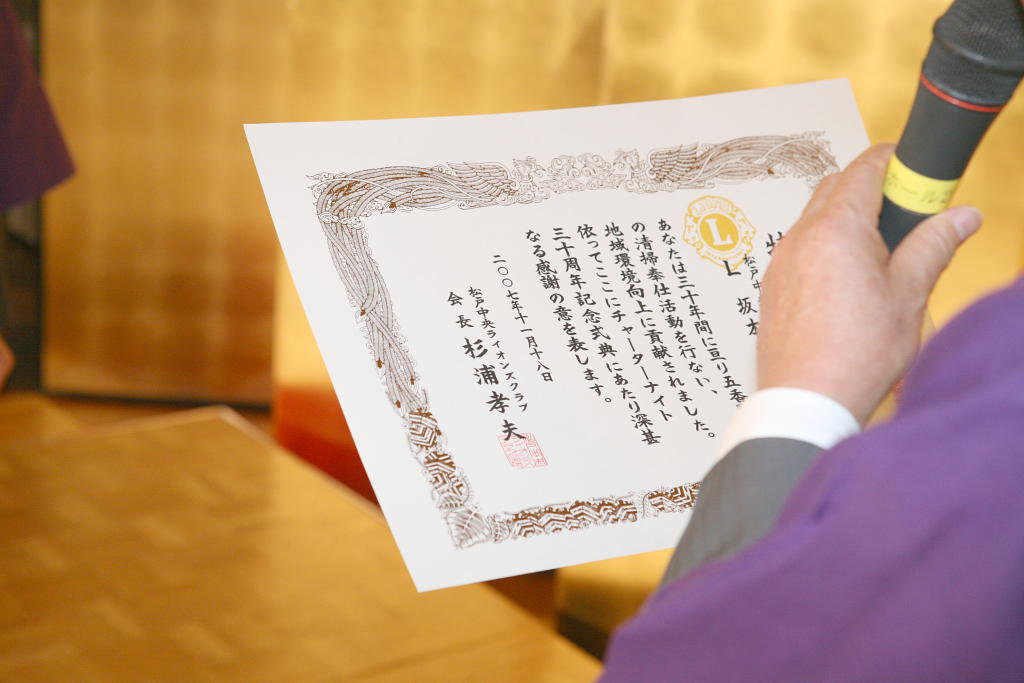 松戸中
L 坂本
あなたは三十年間に亘り五香
の清掃奉仕活動を行ない、
地域環境向上に貢献されました。
依ってここにチャーターナイト
三十周年記念式典にあたり深甚
なる感謝の意を表します。
二〇〇七年十一月十八日
松戸中央ライオンズクラブ
会長 杉浦孝夫
L
ホール